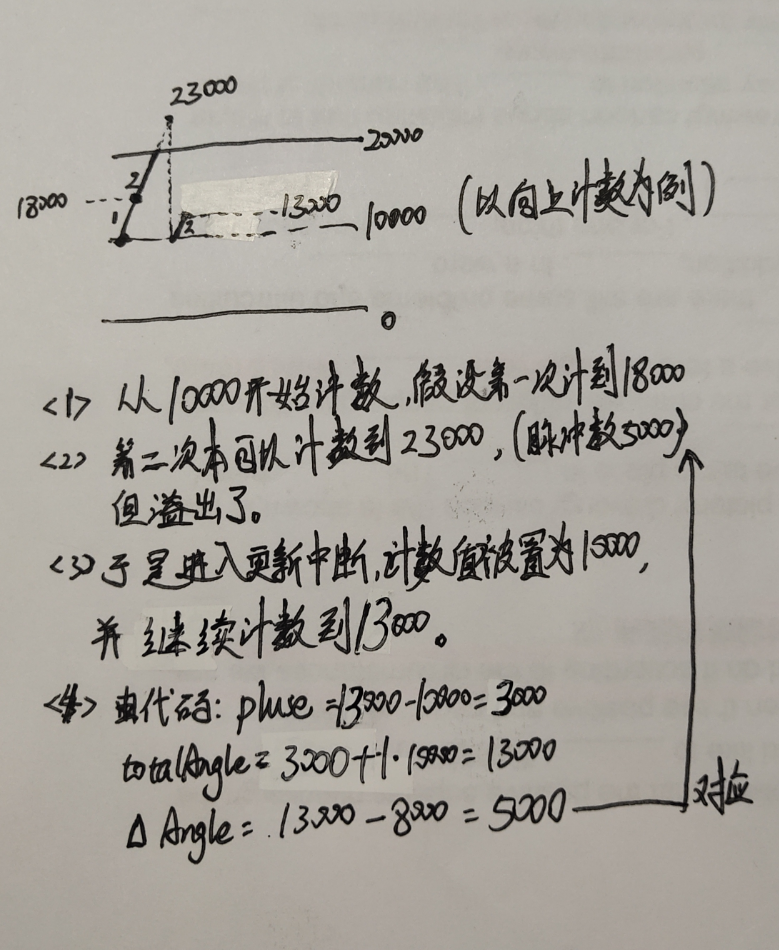 23000
20000
18000
2
1
13000
10000
(以向上计数为例)
0
<1> 从10000开始计数,假设第一次计到18000
<2> 第二次本可以计数到23000,(脉冲数5000)
但溢出了。
<3> 于是进入更新中断,计数值被置为10000,
并继续计数到13000。
<4> 由代码: pluse =13000-10000=3000
totalAngle= 3000+1·10000=13000
Δ Angle= 13000-8000=5000
对应